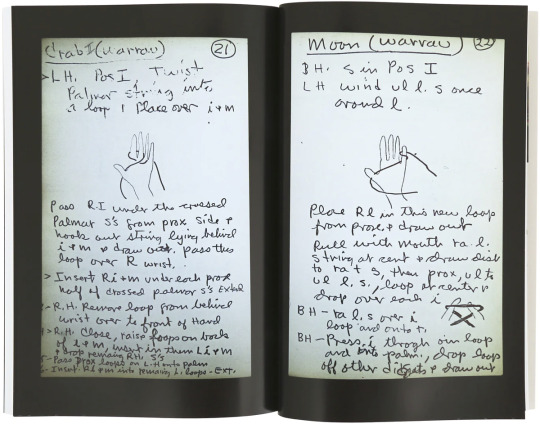 Crab II (Warrau) 21
> L.H. Pos I, Twist
Palmar string into
a loop & Place over i + m
Pass R.I under the crossed
Palmar S's from prox side &
hook out string lying behind
i + m & draw out. Pass this
loop over R wrist.
> Insert Ri + m under each prox
half of crossed palmar S's Extend
- R.H. Remove loop from behind
wrist over to front of Hand
> R.H. Close, raise loops on back
of i + m, insert in them Li + m
& drop remaining RH. S's
5- Pass prox loops on L.H onto palm
6- Insert Ri + m into remaining L. loops - EXT.
Moon (Warrau) 22
BH. S in Pos I
LH wind ul l. s once
around l.
Place Rl in this new loop
from prox. & draw out
Pull with mouth ra. l.
string at cent & draw dist
to ra t s, then prox, ul to
ul l. s., loop at center &
drop over each i
BH - ra l. s over i
loop and onto t.
BH - Press i through own loop
and onto palm, drop loops
off other digits & draw out